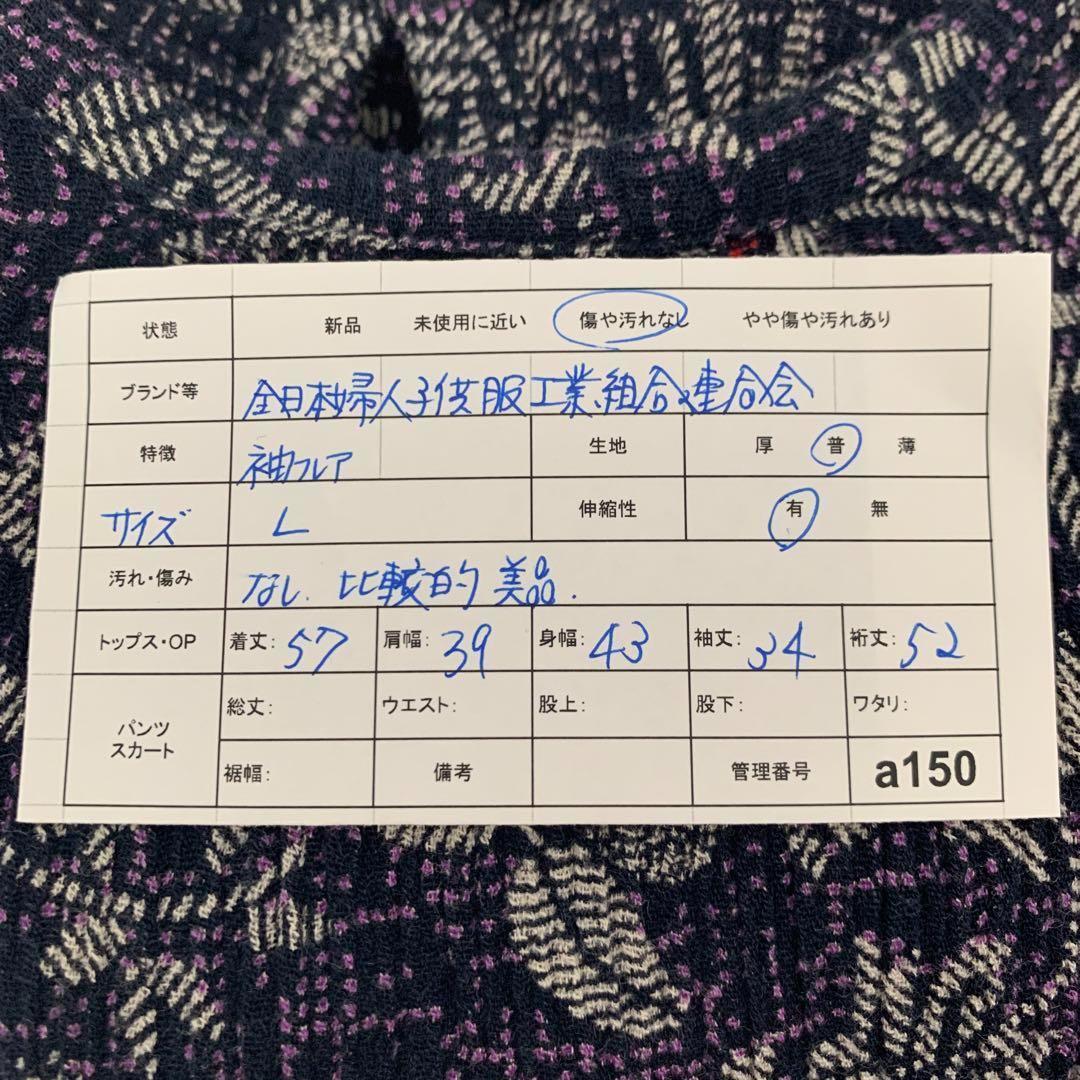 状態 新品 未使用に近い 傷や汚れなし やや傷や汚れあり
ブランド等 全日本婦人子供服工業組合連合会
特徴 袖フレア 生地 厚 普 薄
サイズ L 伸縮性 有 無
汚れ・傷み なし、比較的美品.
トップス・OP 着丈: 57 肩幅: 39 身幅: 43 袖丈: 34 裄丈: 52
パンツ スカート 総丈: ウエスト: 股上: 股下: ワタリ:
裾幅: 備考 管理番号 a150